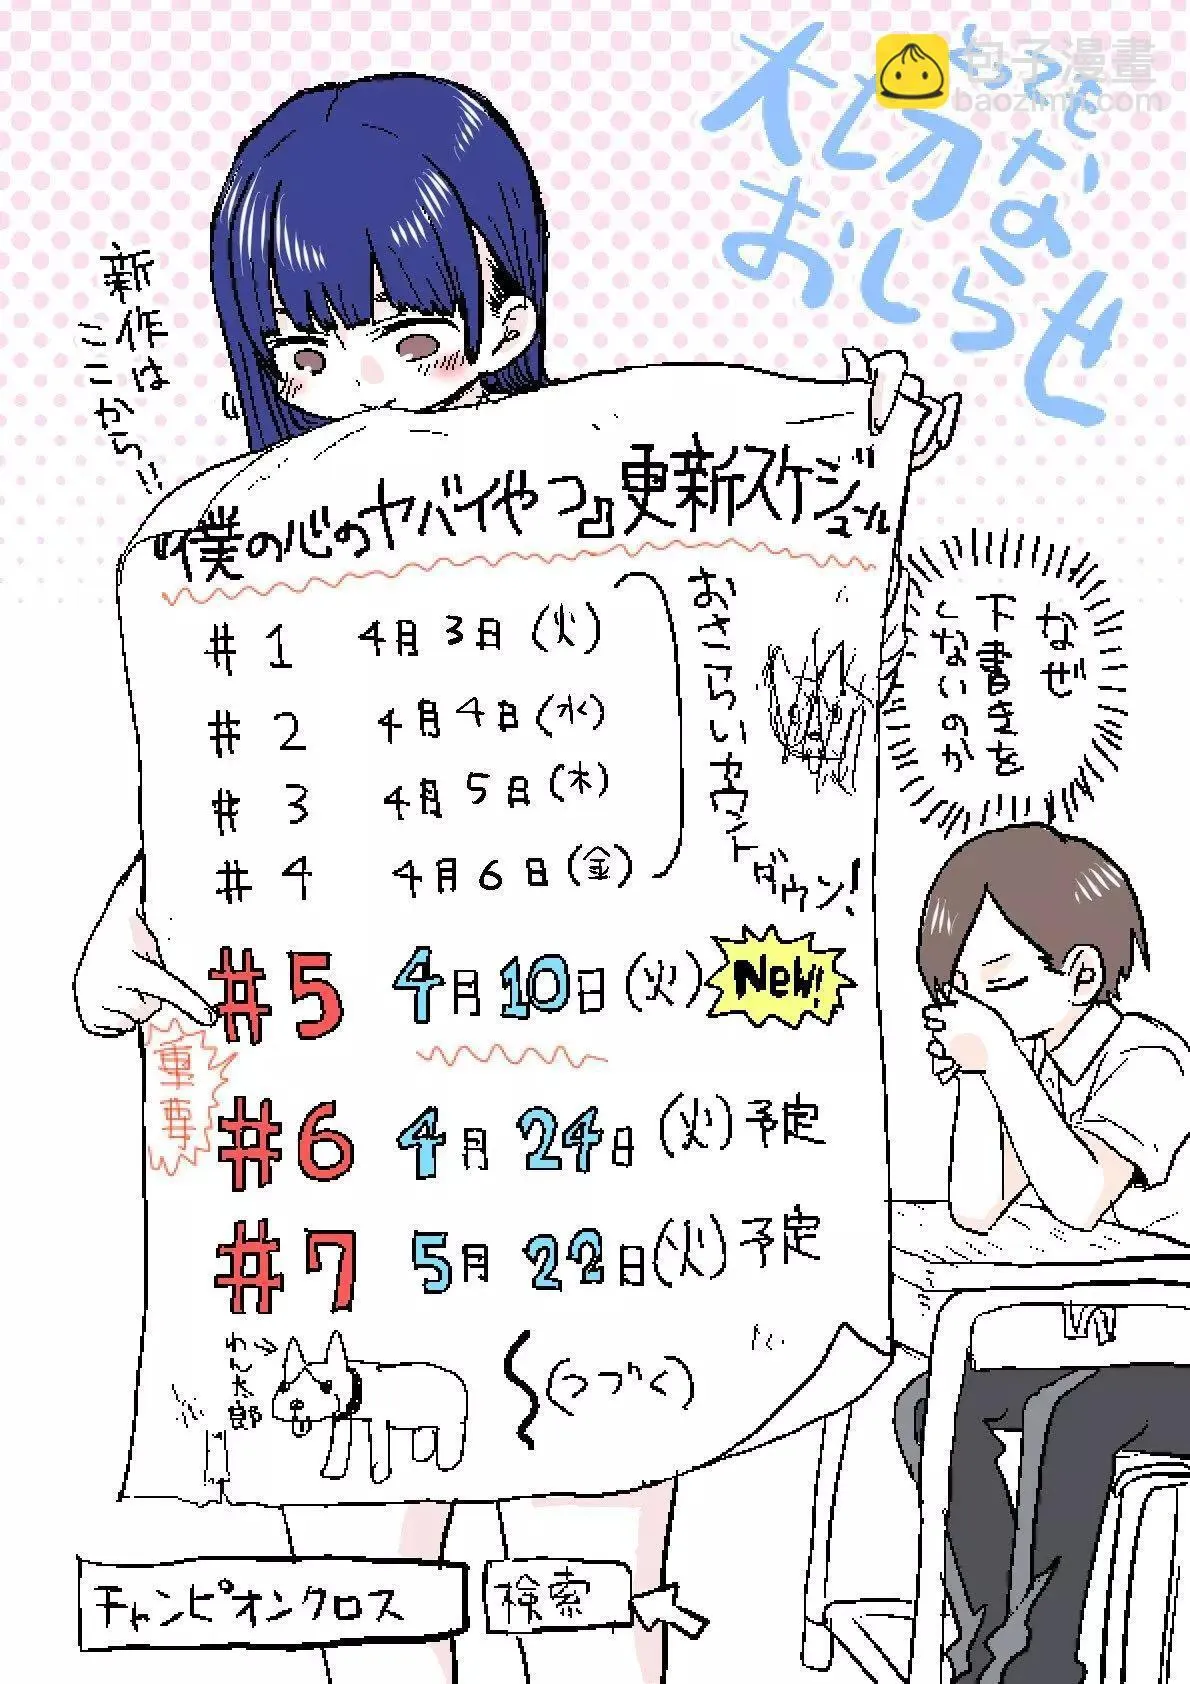 包子漫畫
baozimh.com
とても
大切な
おしらせ
新作は
ここから!!
『僕の心のヤバイやつ』更新スケジュール
#1 4月3日(火)
#2 4月4日(水)
#3 4月5日(木)
#4 4月6日(金)
おさらいカウントダウン!
#5 4月10日(火) New!
重要
#6 4月24日(火)予定
#7 5月22日(火)予定
わん太郎
(つづく)
なぜ
下書きを
しないのか
チャンピオンクロス
検索